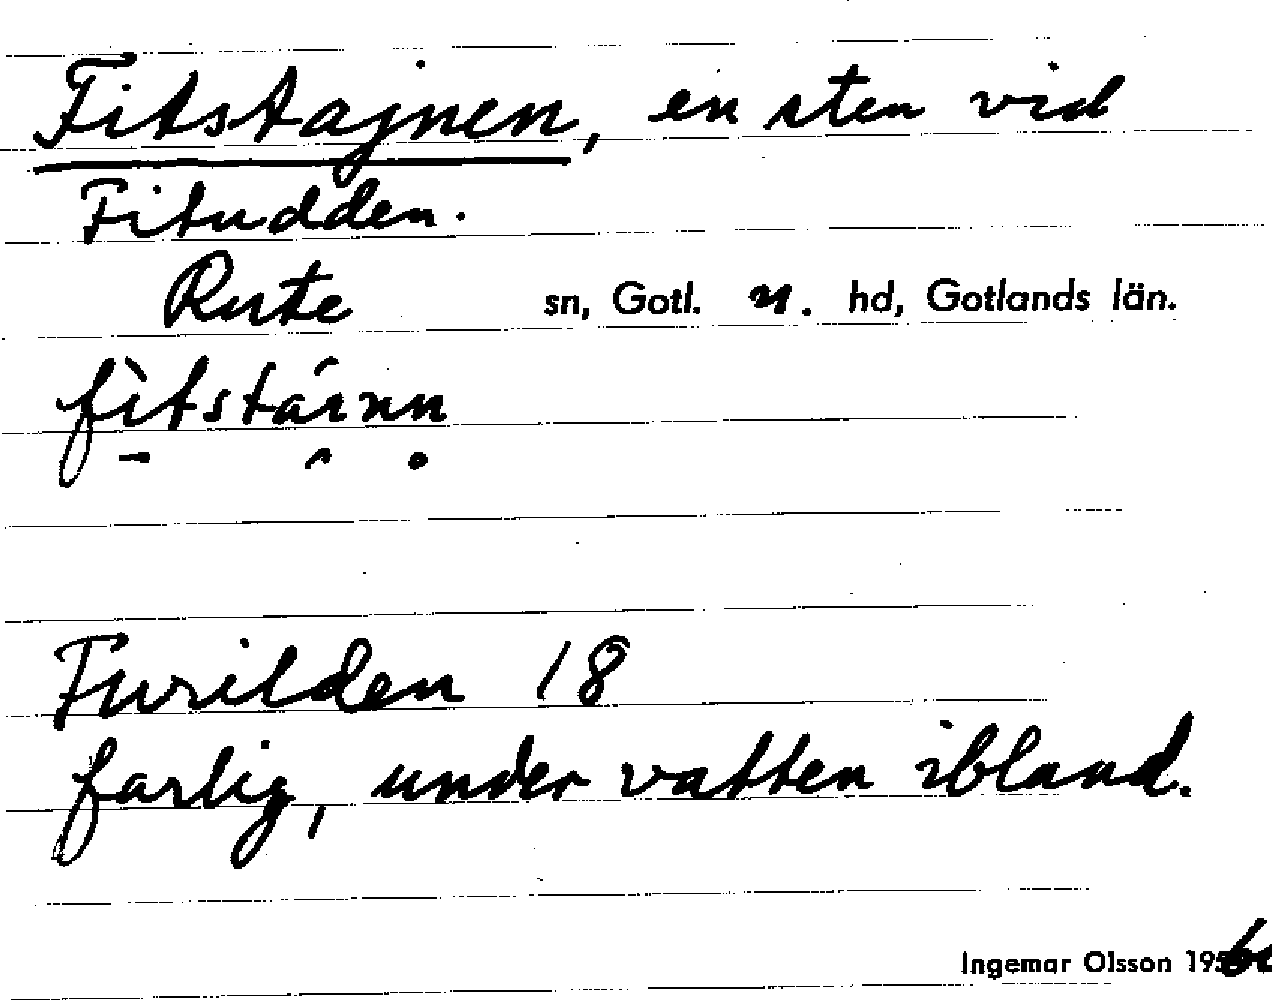 Fitstajnen, en sten vid
Fitudden.
Rute sn, Gotl. n. hd, Gotlands län.
fìtstáınn
Furilden 18
farlig, under vatten ibland.
Ingemar Olsson 19